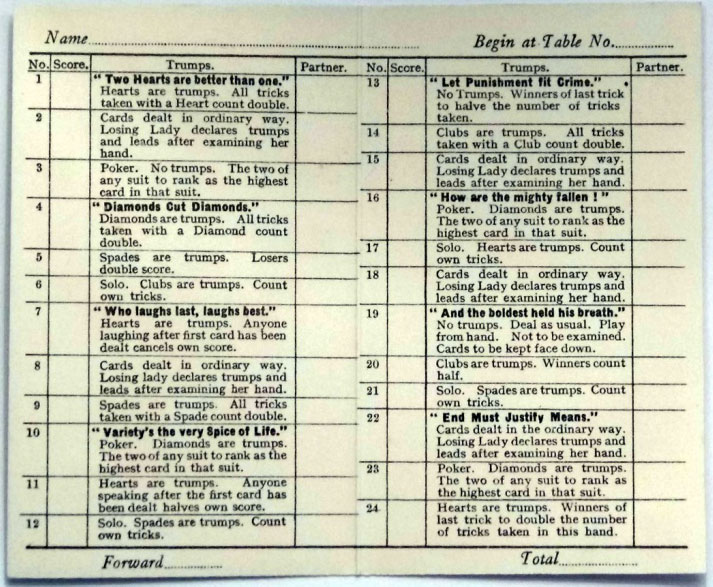 Name
Begin at Table No.
No. Score. Trumps. Partner.
1 " Two Hearts are better than one."
Hearts are trumps. All tricks
taken with a Heart count double.
2 Cards dealt in ordinary way.
Losing Lady declares trumps
and leads after examining her
hand.
3 Poker. No trumps. The two of
any suit to rank as the highest
card in that suit.
4 " Diamonds Cut Diamonds."
Diamonds are trumps. All tricks
taken with a Diamond count
double.
5 Spades are trumps. Losers
double score.
6 Solo. Clubs are trumps. Count
own tricks.
7 " Who laughs last, laughs best."
Hearts are trumps. Anyone
laughing after first card has been
dealt cancels own score.
8 Cards dealt in ordinary way.
Losing lady declares trumps and
leads after examining her hand.
9 Spades are trumps. All tricks
taken with a Spade count double.
10 " Variety's the very Spice of Life."
Poker. Diamonds are trumps.
The two of any suit to rank as the
highest card in that suit.
11 Hearts are trumps. Anyone
speaking after the first card has
been dealt halves own score.
12 Solo. Spades are trumps. Count
own tricks.
Forward
No. Score. Trumps. Partner.
13 " Let Punishment fit Crime."
No Trumps. Winners of last trick
to halve the number of tricks
taken.
14 Clubs are trumps. All tricks
taken with a Club count double.
15 Cards dealt in ordinary way.
Losing Lady declares trumps and
leads after examining her hand.
16 " How are the mighty fallen ! "
Poker. Diamonds are trumps.
The two of any suit to rank as the
highest card in that suit.
17 Solo. Hearts are trumps. Count
own tricks.
18 Cards dealt in ordinary way.
Losing Lady declares trumps and
leads after examining her hand.
19 " And the boldest held his breath."
No trumps. Deal as usual. Play
from hand. Not to be examined.
Cards to be kept face down.
20 Clubs are trumps. Winners count
half.
21 Solo. Spades are trumps. Count
own tricks.
22 " End Must Justify Means."
Cards dealt in the ordinary way.
Losing Lady declares trumps and
leads after examining her hand.
23 Poker. Diamonds are trumps.
The two of any suit to rank as
the highest card in that suit.
24 Hearts are trumps. Winners of
last trick to double the number
of tricks taken in this hand.
Total